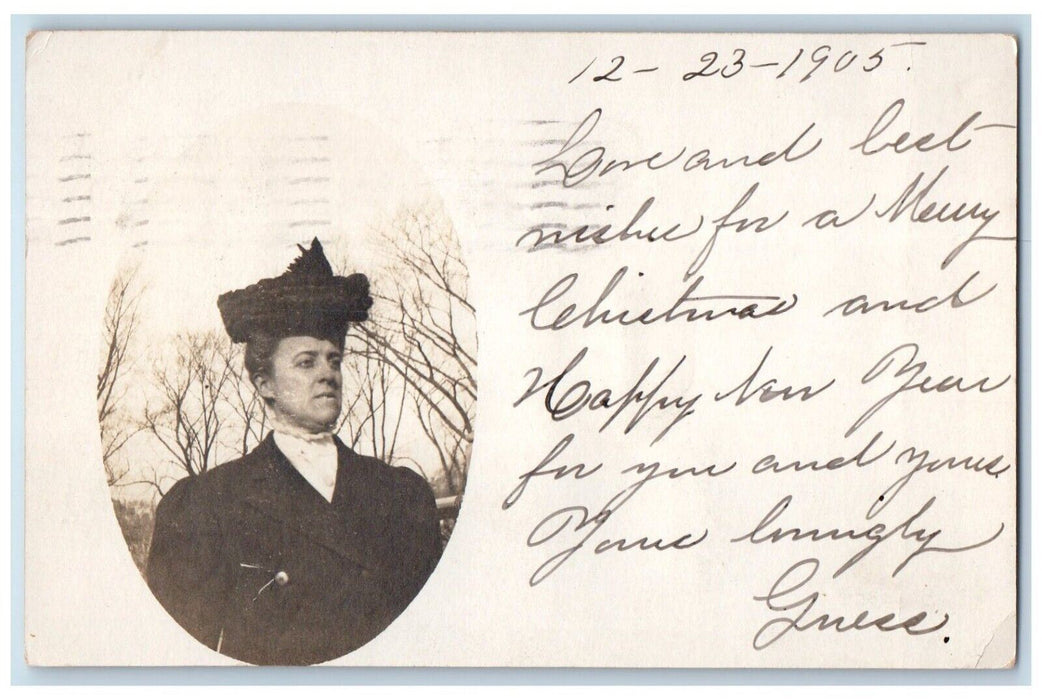 12-23-1905.
Love and best
wishes for a Merry
Christmas and
Happy New Year
for you and yours.
Yours lovingly
Guess.